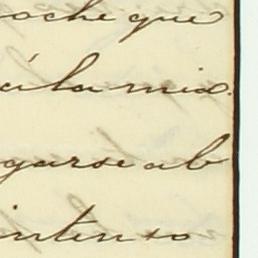 oche que
á la mis
garse ab
intenso